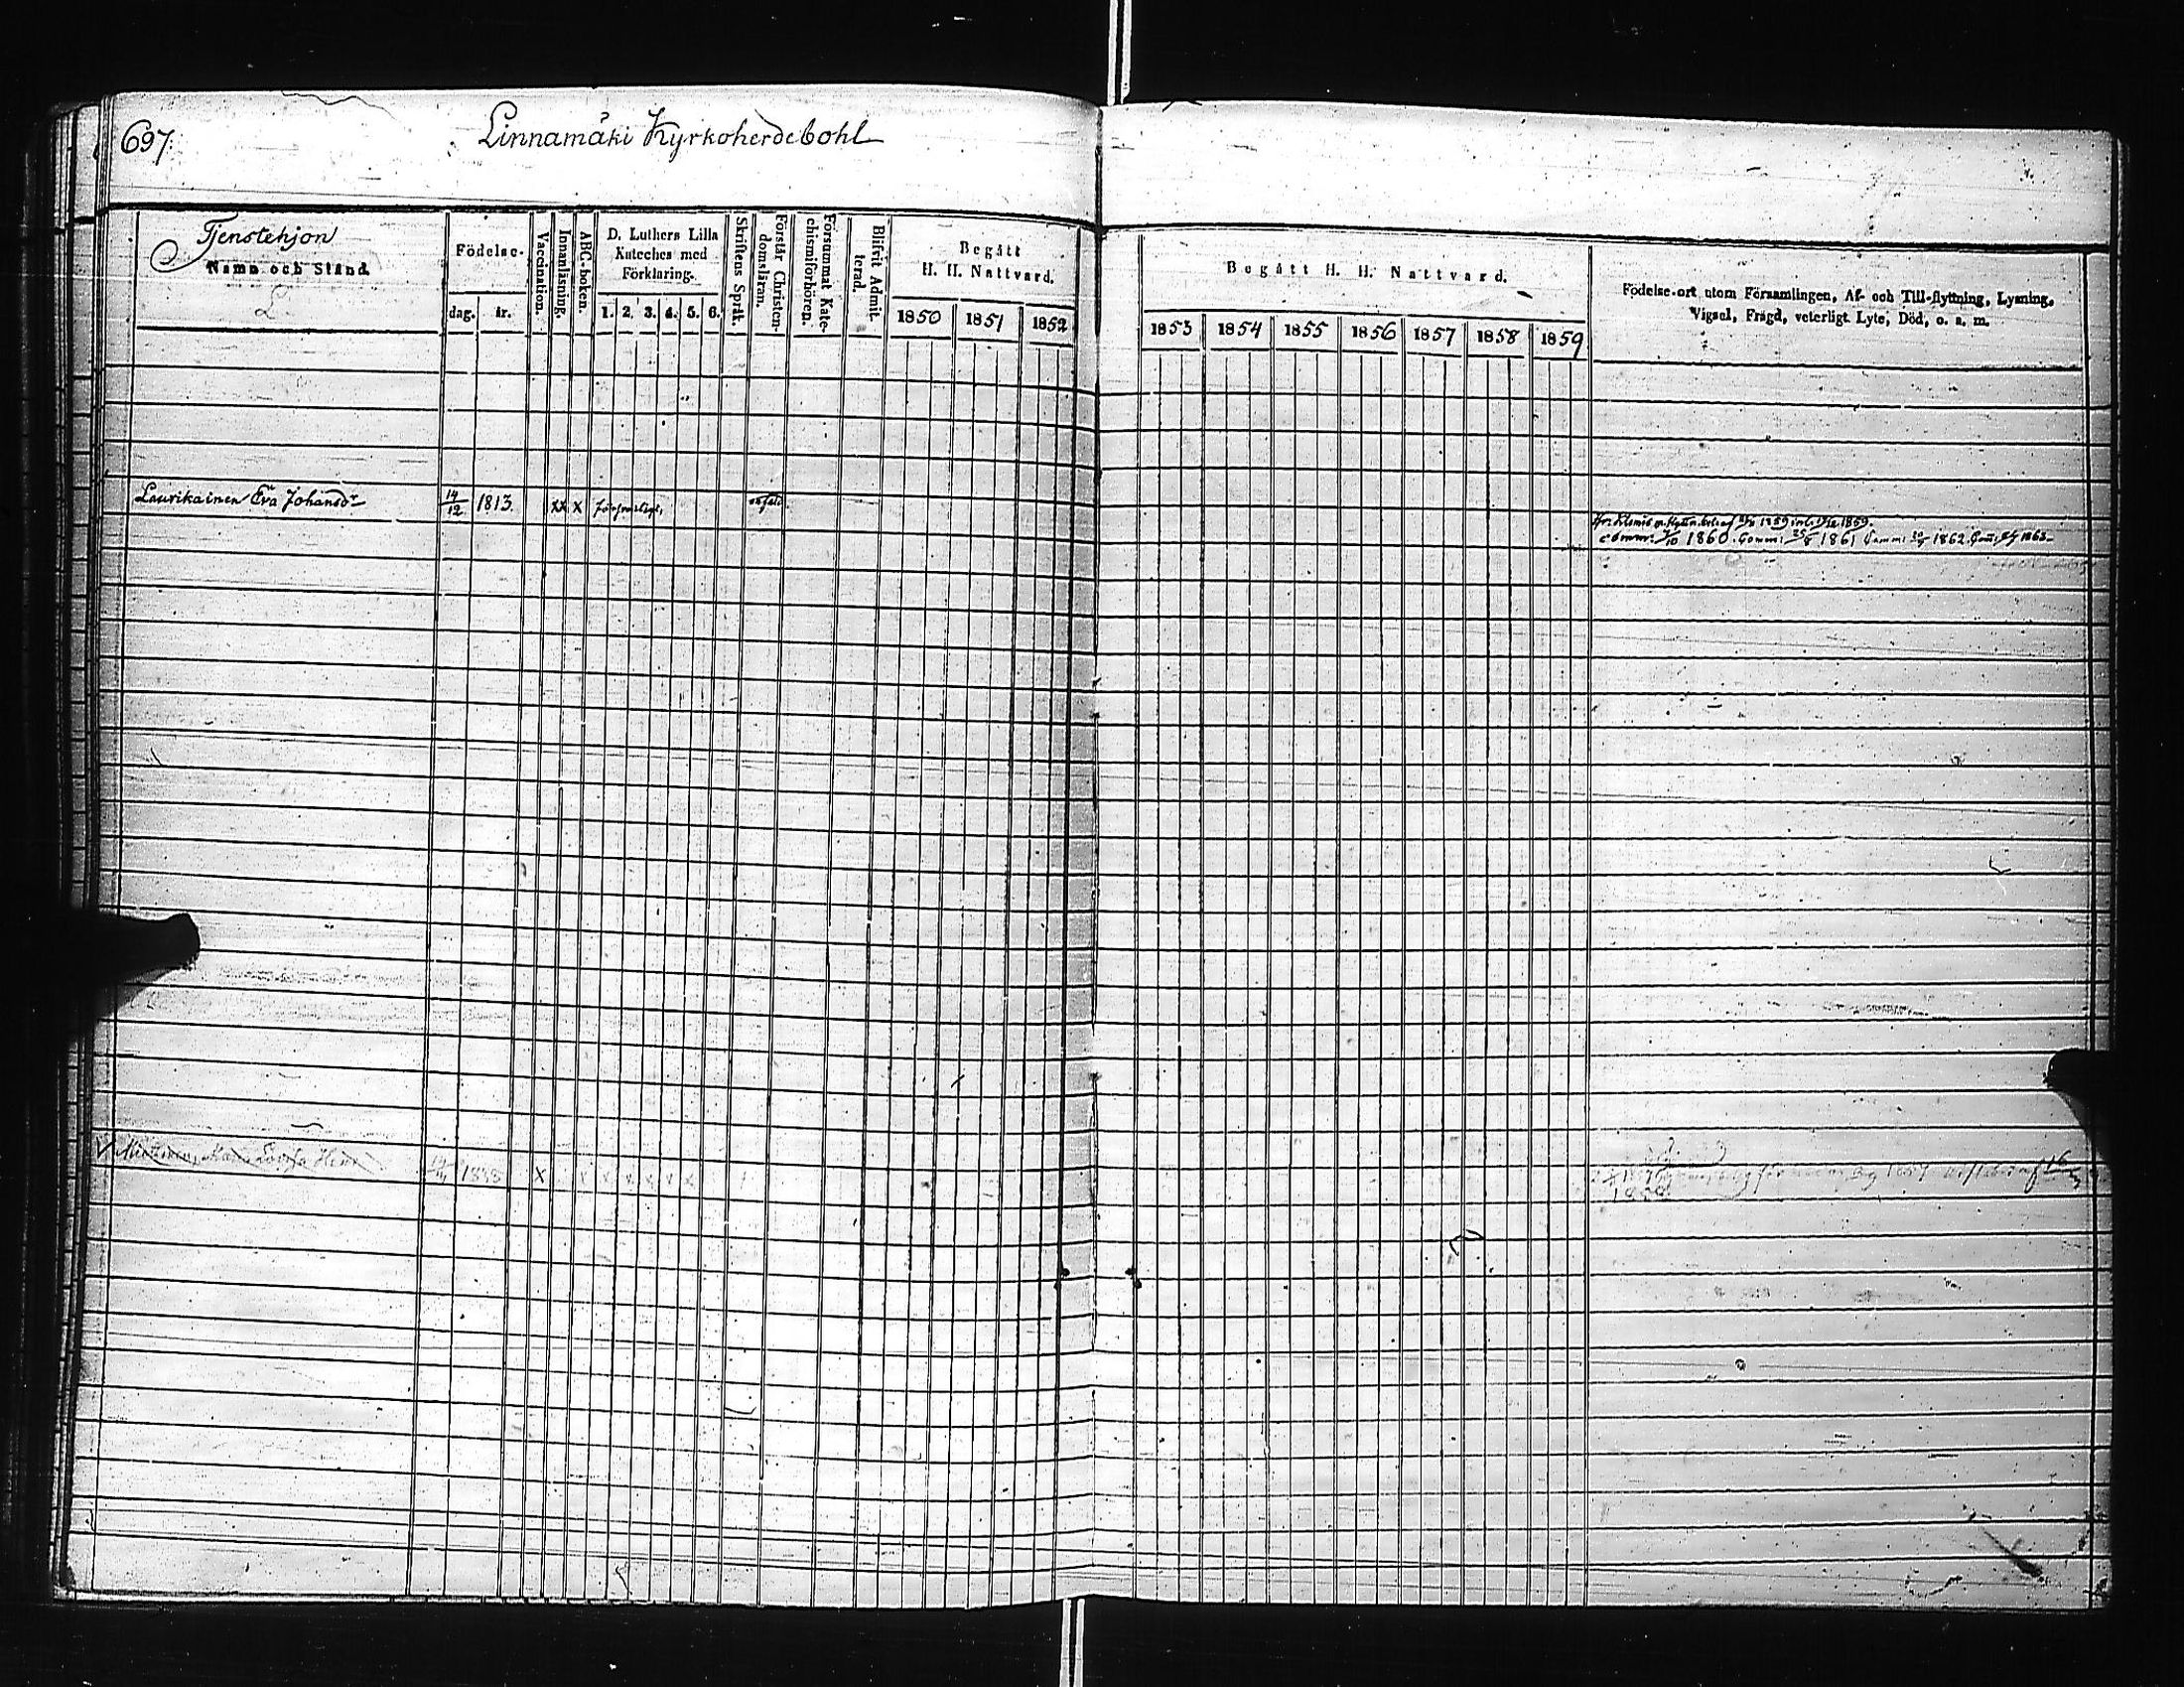 697.
Linnamäki Kyrkoherdebohl
Tjenstehjon
Namn och Stånd.
L.
Födelse-
dag.
år.
Vaccination.
Innanläsning.
ABC-boken.
D. Luthers Lilla
Kateches med
Förklaring.
1. 2. 3. 4. 5. 6.
Skriftens Språk.
Förstår Christen-
domsläran.
Försummat Kate-
chismiförhören.
Blifvit Admit-
terad.
Begått
H. H. Nattvard.
1850 1851 1852
Begått H. H. Nattvard.
1853 1854 1855 1856 1857 1858 1859
Födelse-ort utom Församlingen, Af- och Till-flyttning, Lysning,
Vigsel, Frägd, veterligt Lyte, Död, o. s. m.
Laurikainen Eva Johansdr 14/12 1813. xx x
1859 1859.
comm. 7/10 1860. Comm: 25/8 1861 Comm: 1862. 1863
1838 x x x x x x x
1859 16/3